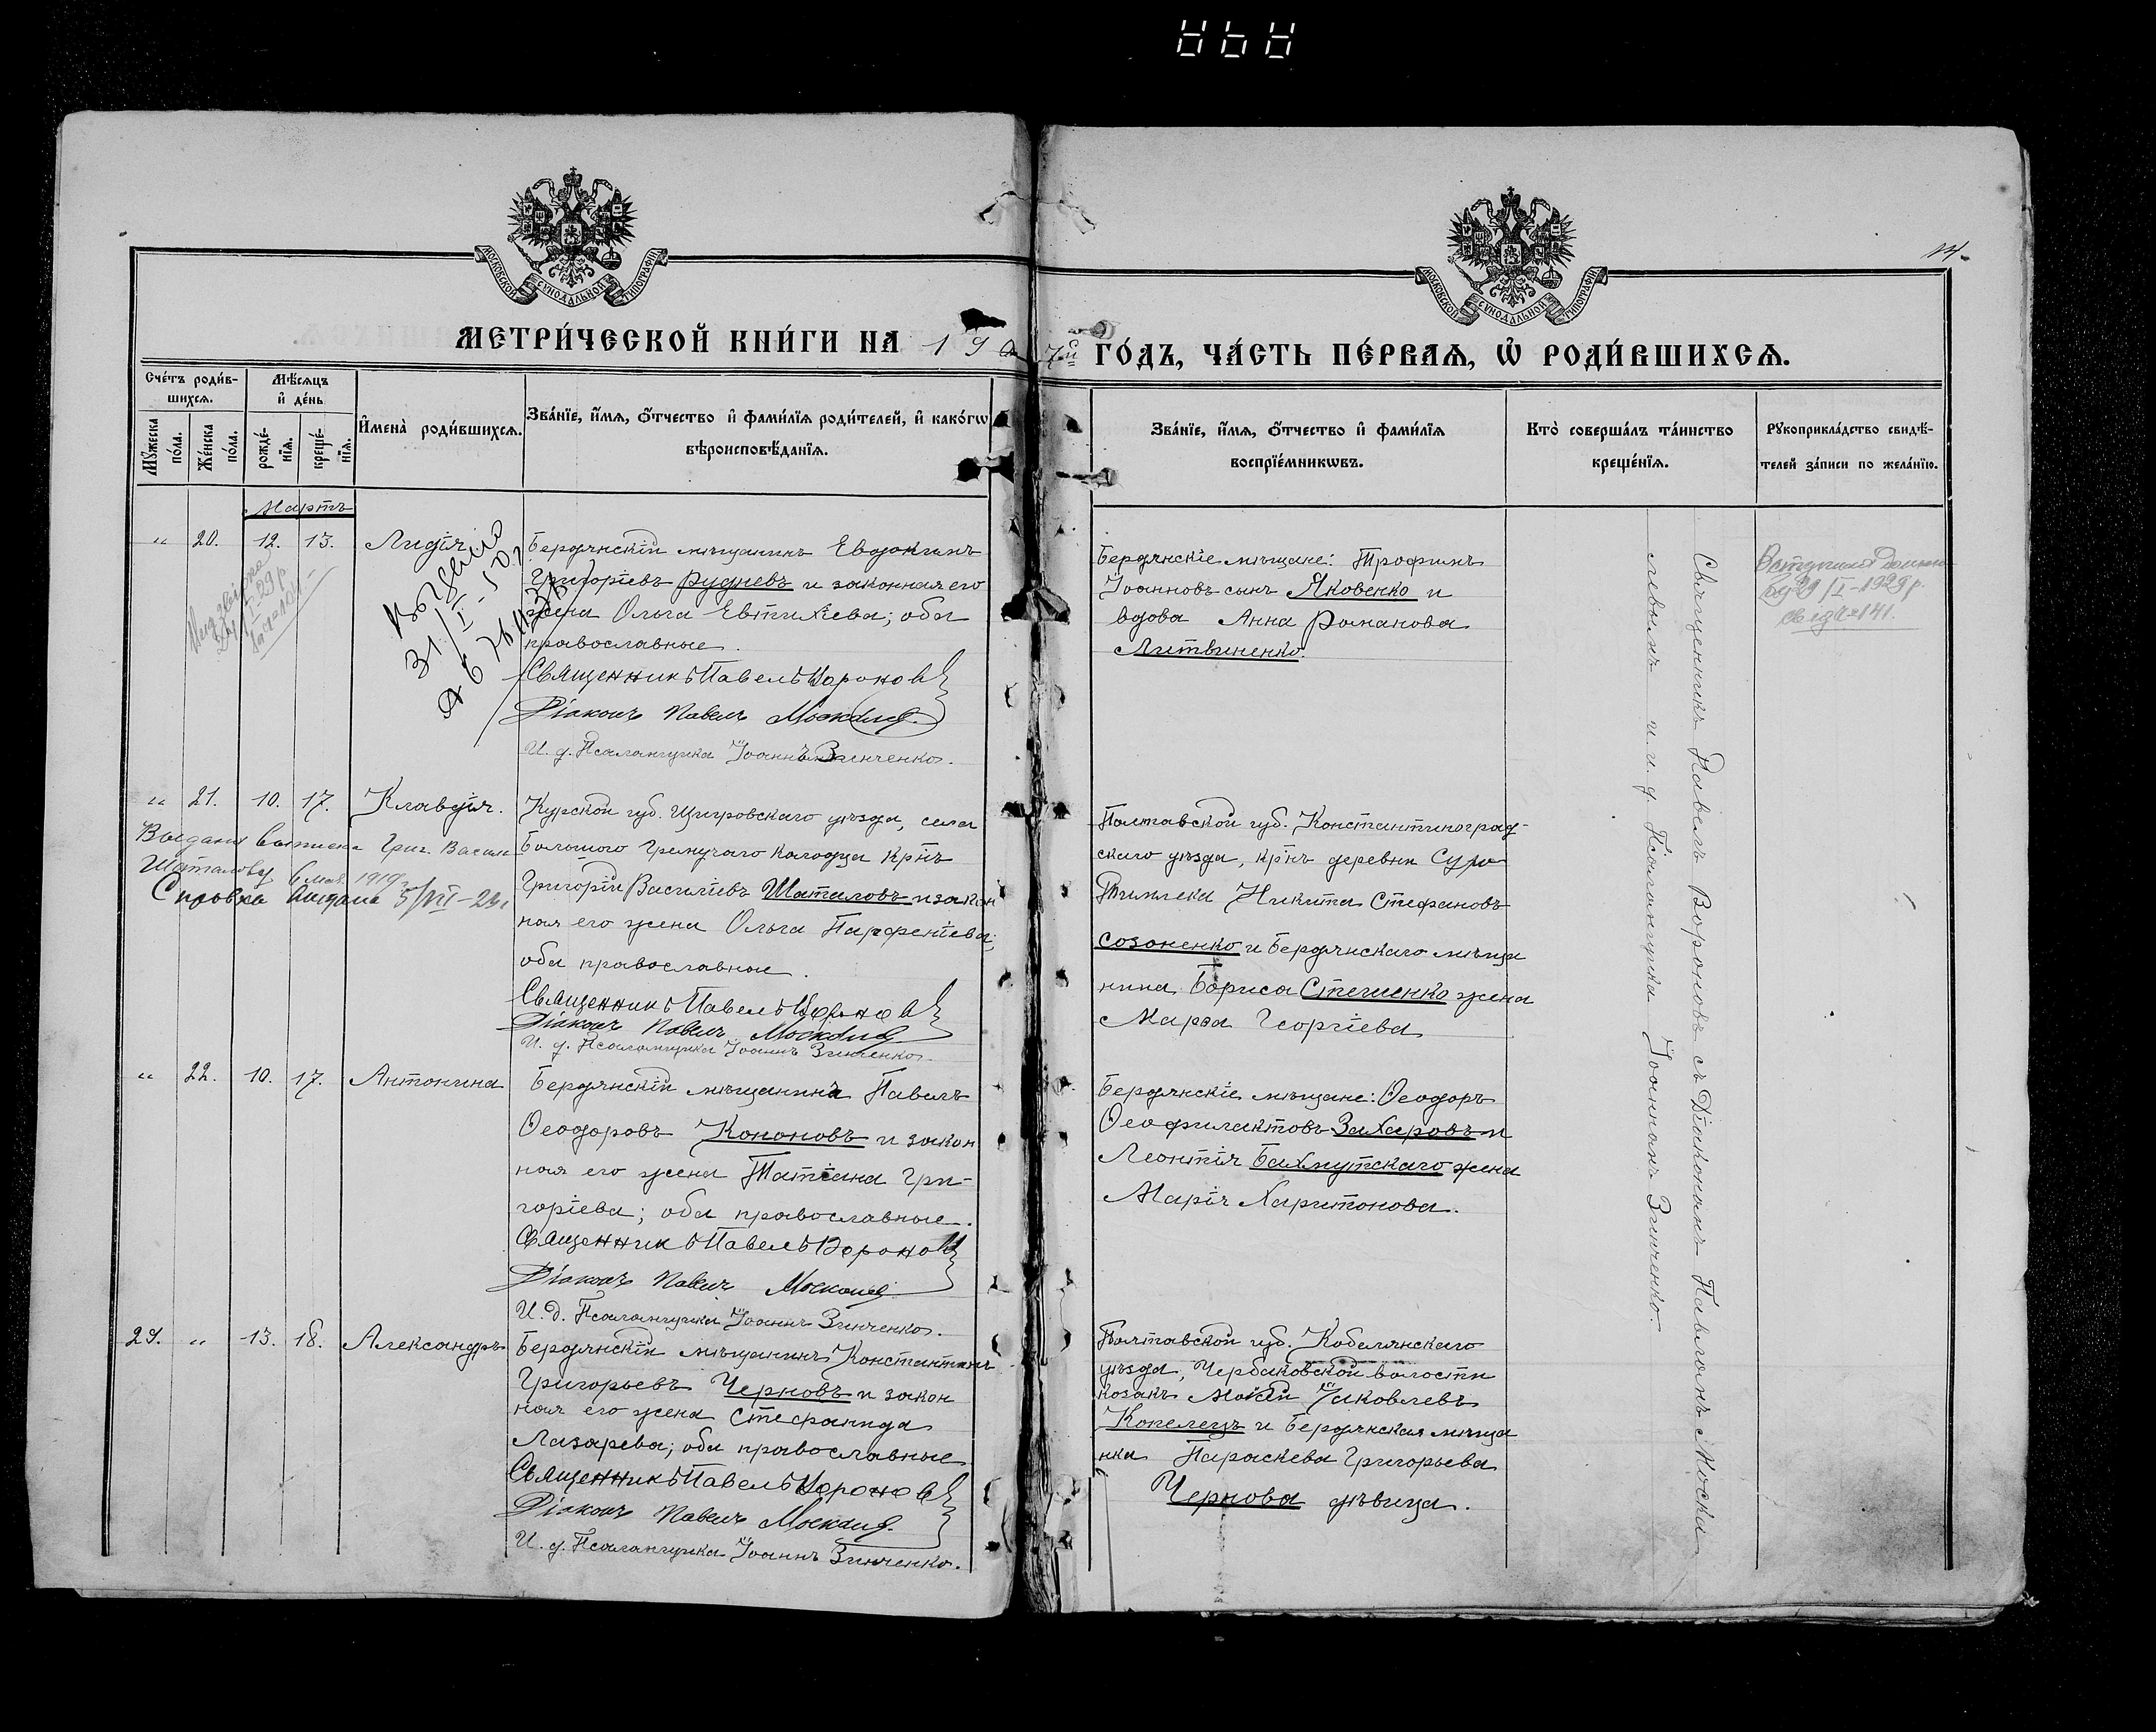 14.
МОСКОВСКОЙ СѴНОДАЛЬНОЙ ТИПОГРАФІИ
МОСКОВСКОЙ СѴНОДАЛЬНОЙ ТИПОГРАФІИ
МЕТРИ́ЧЕСКОЙ КНИ́ГИ НА 190 7й ГО́ДЪ, ЧА́СТЬ ПЕ́РВАѦ, Ѡ҆ РОДИ́ВШИХСѦ.
Сче́тъ роди́в-
шихсѧ.
Мꙋ́жеска по́ла.
Же́нска по́ла.
Мѣ́сѧцъ
и҆ де́нь
рожде́-
нїѧ.
креще́-
нїѧ.
И҆мена̀ роди́вшихсѧ.
Зва́нїе, и҆́мѧ, ѻ҆́тчество и҆ фами́лїѧ роди́телей, и҆ како́гѡ
вѣроисповѣ́данїѧ.
Зва́нїе, и҆́мѧ, ѻ҆́тчество и҆ фами́лїѧ
воспрїе́мникѡвъ.
Кто̀ соверша́лъ та́инство
креще́нїѧ.
Рꙋкоприкла́дство свидѣ́-
телей за́писи по жела́нїю.
Мартъ
" 20. 12. 13. Лидія
Бердянскій мѣщанинъ Евдокимъ
Григоріевъ Рудневъ и законная его
жена Ольга Евтихіева; оба
православные.
Священникъ Павелъ Вороновъ
Діаконъ Павелъ Москалев
И. д. Псаломщика Іоаннъ Зинченко.
Бердянскіе мѣщане: Трофимъ
Іоанновъ сынъ Яковенко и
вдова Анна Романова
Литвиненко.
31/I
29/I-1929 р.
№ 141.
" 21. 10. 17. Клавдія.
Выдана выписка Григ. Васил
Шаталову 6 мая 1919 г.
Справка выдана 5/VII-23г
Курской губ. Щигровскаго уѣзда, села
Большого Гремучаго Колодца кр-нъ
Григорій Василіевъ Шаталовъ и закон
ная его жена Ольга Парфеніева;
оба православные.
Священникъ Павелъ Вороновъ
Діаконъ Павелъ Москалев
И. д. Псаломщика Іоаннъ Зинченко.
Полтавской губ. Константиноград-
скаго уѣзда, кр-нъ деревни
Никита Стефановъ
Созоненко и Бердянскаго мѣща
нина Бориса Стешенко жена
Марѳа Георгіева
" 22. 10. 17. Антонина
Бердянскій мѣщанинъ Павелъ
Ѳеодоровъ Кононовъ и закон
ная его жена Татіана Гри-
горіева; оба православные.
Священникъ Павелъ Вороновъ
Діаконъ Павелъ Москалев
И. д. Псаломщика Іоаннъ Зинченко.
Бердянскіе мѣщане: Ѳеодоръ
Ѳеофилактовъ Захаровъ и
Леонтія Бахмутскаго жена
Марія Харитонова.
24. " 13. 18. Александръ
Бердянскій мѣщанинъ Константинъ
Григорьевъ Черновъ и закон
ная его жена Стефанида
Лазарева; оба православные
Священникъ Павелъ Вороновъ
Діаконъ Павелъ Москалев
И. д. Псаломщика Іоаннъ Зинченко.
Полтавской губ. Кобелянскаго
уѣзда, Чербаковской волости
козакъ Мокій Іаковлевъ
Копелецъ и Бердянская мѣща
нка Параскева Григорьева
Чернова дѣвица.
Священникъ Павелъ Вороновъ съ Діакономъ Павломъ Моска-
левымъ и и. д. Псаломщика Іоанномъ Зинченко.